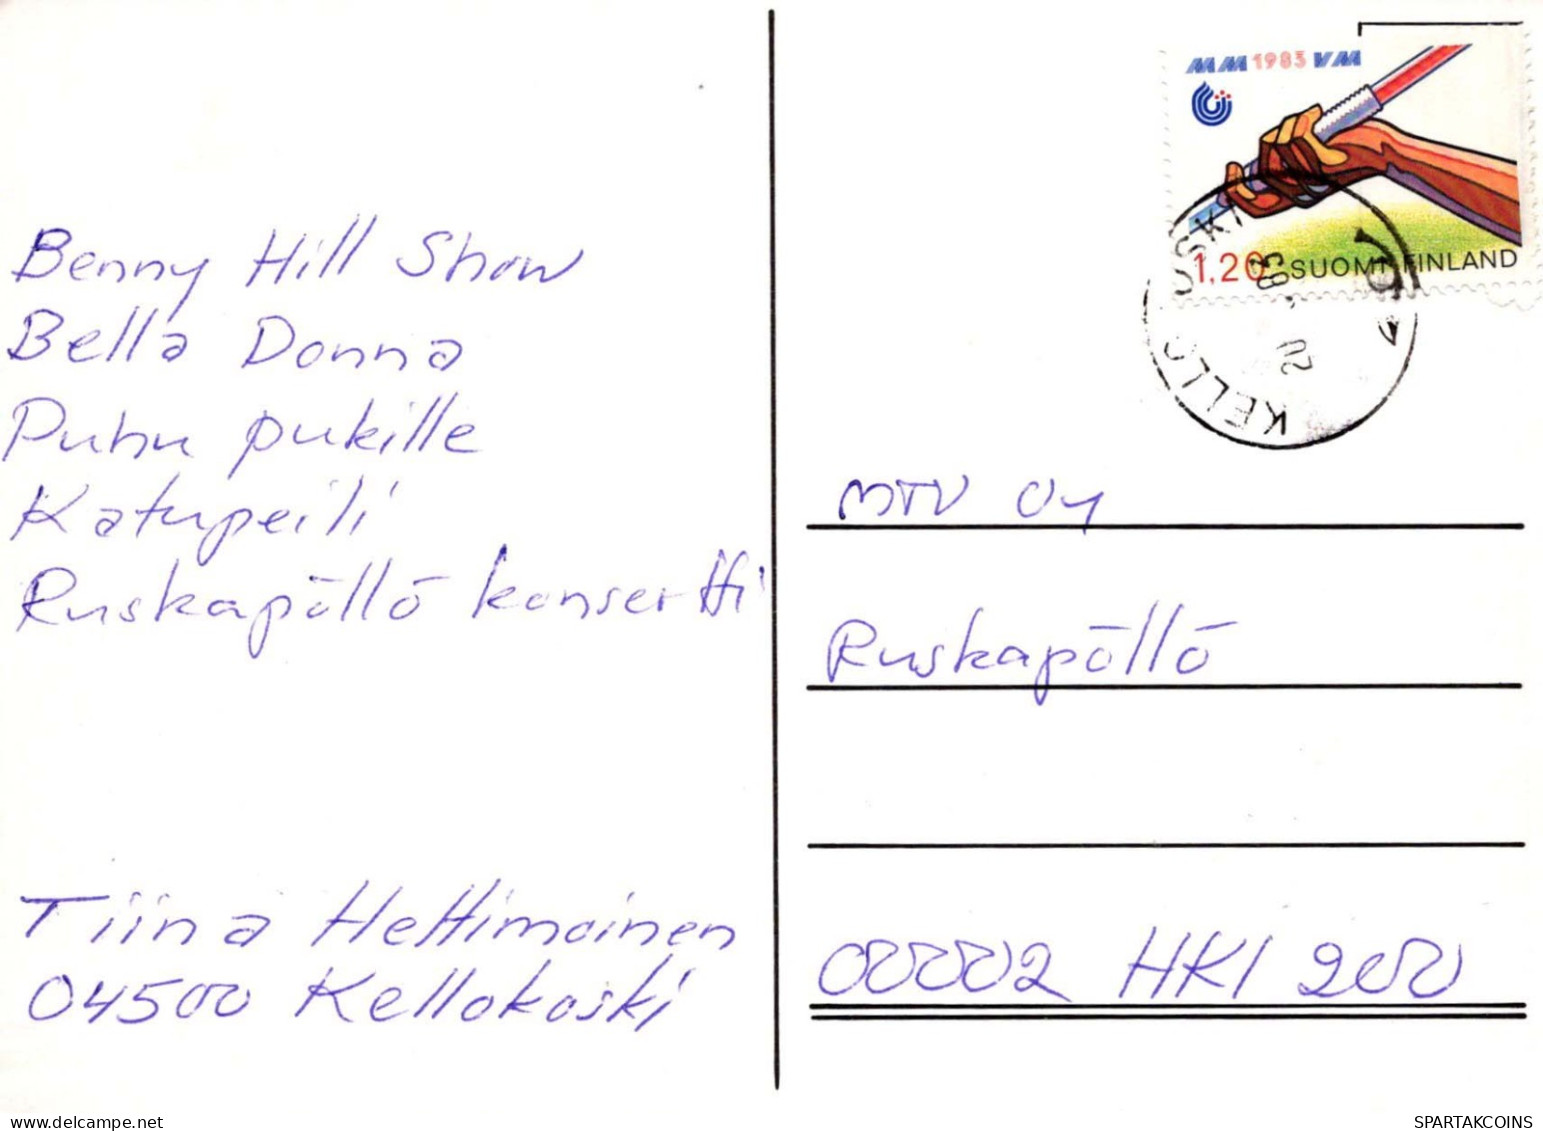 Benny Hill Show
Bella Donna
Puhu pukille
Katupeili
Ruskapöllö konsertti
Tiina Hettimainen
04500 Kellokoski
MM 1983 VM
1,20 SUOMI FINLAND
KELLOKOSKI
MTV Oy
Ruskapöllö
00002 HKI 200
www.delcampe.net
SPARTAKCOINS